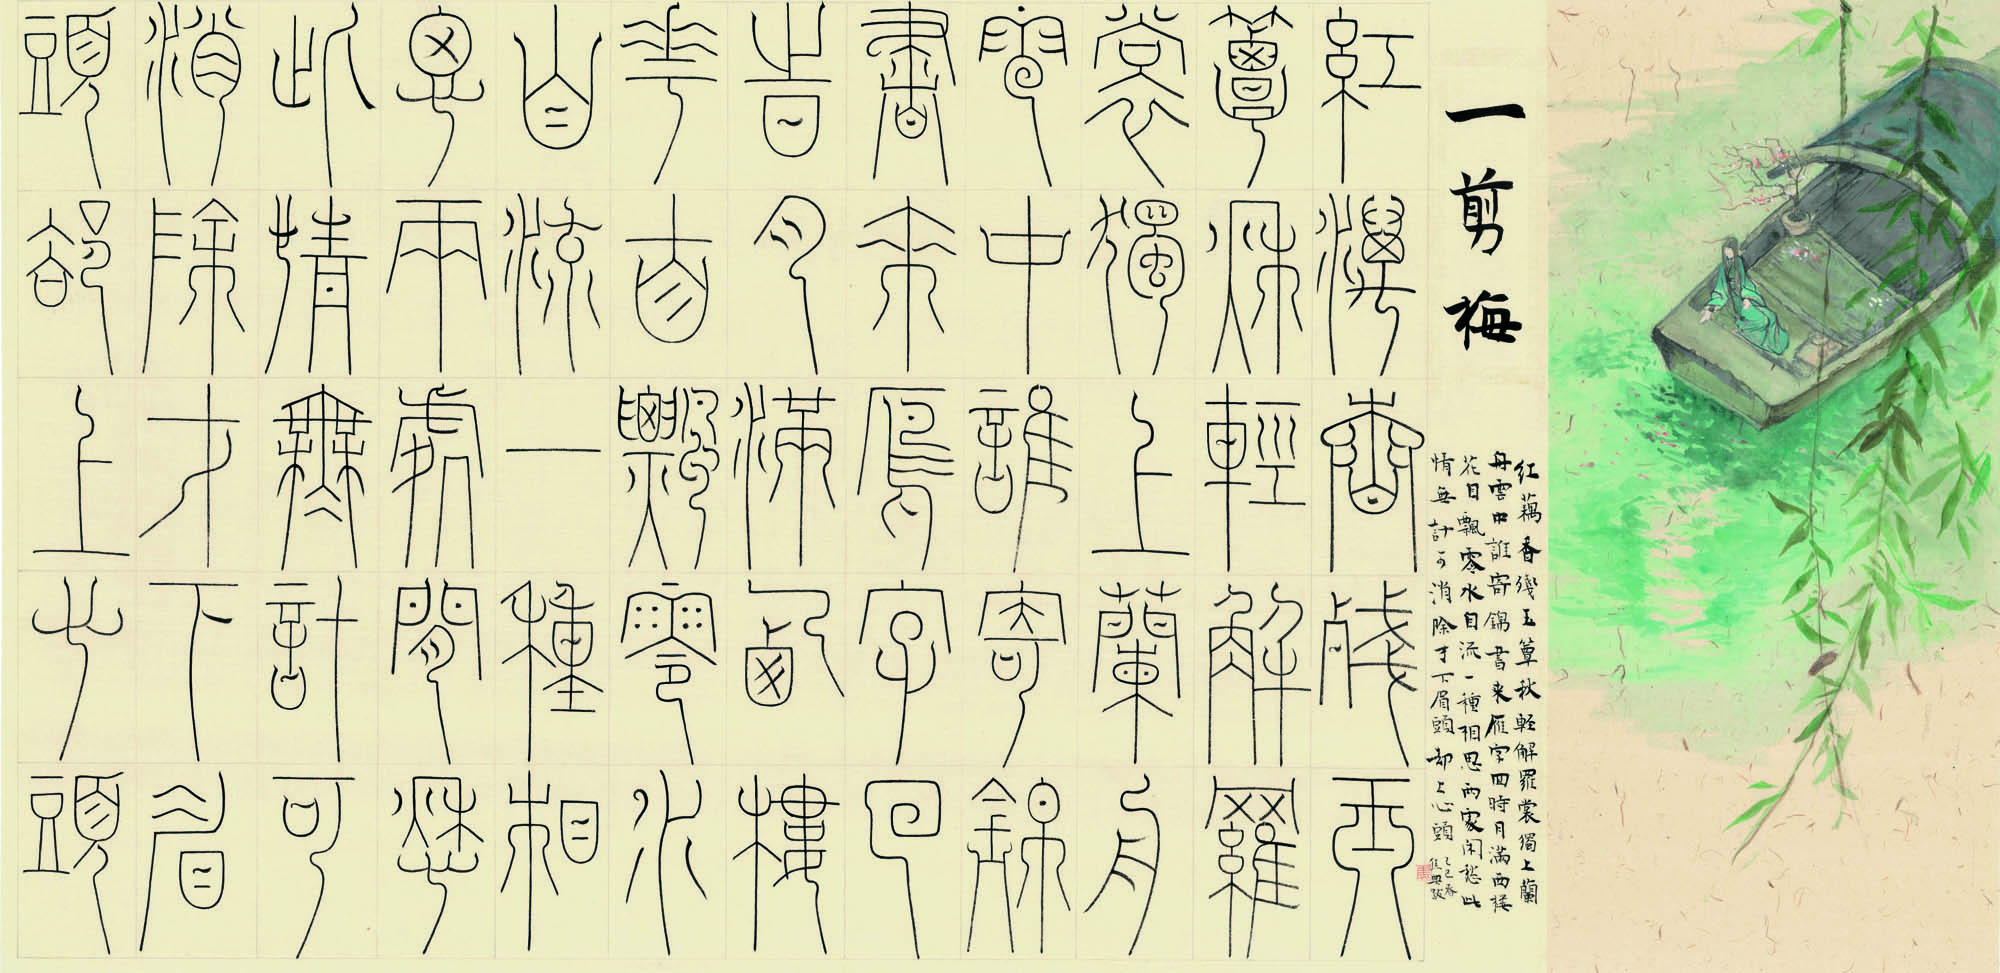 一剪梅
紅藕香殘玉
簟秋輕解羅
裳獨上蘭舟
雲中誰寄錦
書來雁字回
時月滿西樓
花自飄零水
自流一種相
思兩處閒愁
此情無計可
消除才下眉
頭卻上心頭
紅藕香殘玉簟秋輕解羅裳獨上蘭
舟雲中誰寄錦書来雁字回時月滿西樓
花自飄零水自流一種相思兩處閑愁此
情無計可消除才下眉頭却上心頭
乙巳春